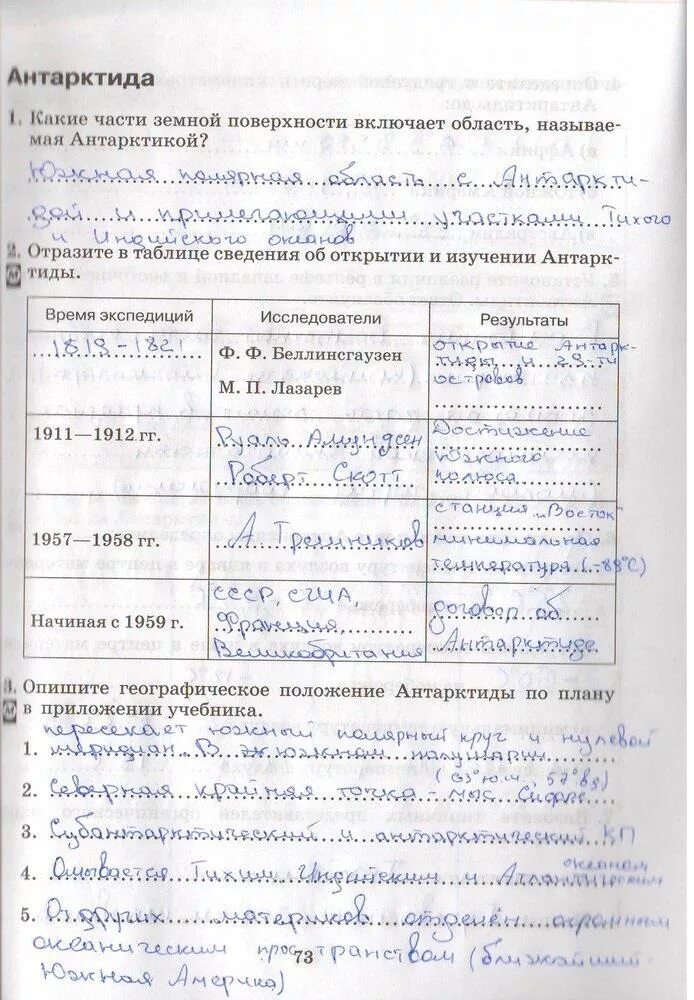 Антарктида
1. Какие части земной поверхности включает область, называе-
мая Антарктикой?
Южная полярная область с Антаркти-
дой и прилегающими участками Тихого
и Индийского океанов
2. Отразите в таблице сведения об открытии и изучении Антарк-
М тиды.
Время экспедиций Исследователи Результаты
1819-1821 Ф. Ф. Беллинсгаузен
М. П. Лазарев
открытие Антарк-
тиды и 29-ти
островов
1911—1912 гг. Руаль Амундсен
Роберт Скотт
Достижение
южного
полюса
1957—1958 гг. А Трешников
станция „Восток"
минимальная
температура (-88°С)
Начиная с 1959 г. СССР, США,
Франция,
Великобритания
договор об
Антарктиде
3. Опишите географическое положение Антарктиды по плану
М в приложении учебника.
пересекает южный полярный круг и нулевой
1. меридиан. В южном полушарии
2. Северная крайняя точка - мыс Сифре (63°ю.ш, 57°вд)
3. Субантарктический и антарктический КП
4. Омывается Тихим Индийским и Атлантическим океаном
5. От других материков отделён огромным
океаническим пространством (ближайший
Южная Америка)
73